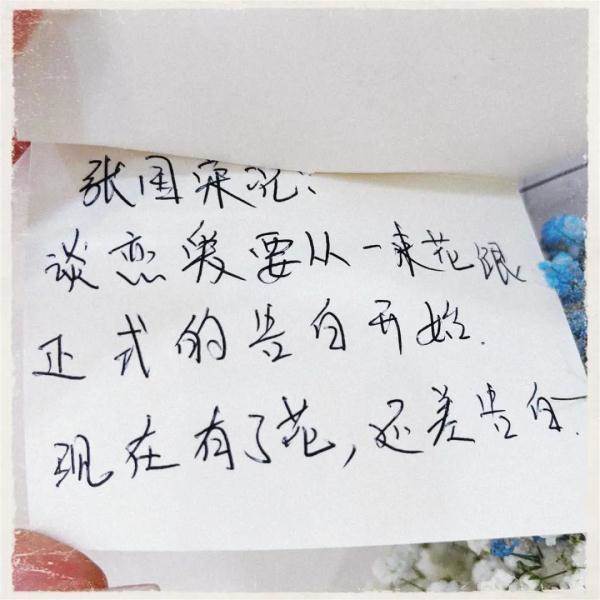 张国荣说：
谈恋爱要从一束花跟
正式的告白开始.
现在有了花,还差告白.